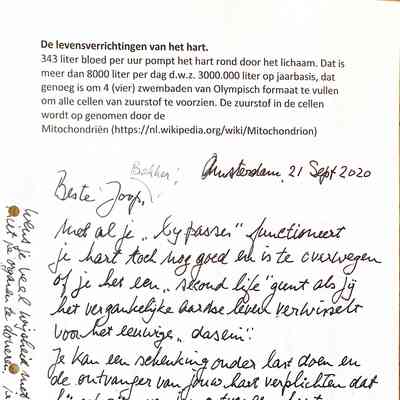 De levensverrichtingen van het hart.
343 liter bloed per uur pompt het hart rond door het lichaam. Dat is
meer dan 8000 liter per dag d.w.z. 3000.000 liter op jaarbasis, dat
genoeg is om 4 (vier) zwembaden van Olympisch formaat te vullen
om alle cellen van zuurstof te voorzien. De zuurstof in de cellen
wordt op genomen door de
Mitochondriën (https://nl.wikipedia.org/wiki/Mitochondrion)
Bakker!
Amsterdam, 21 Sept 2020
Beste Joop,
Met al je „bypasses" functioneert
je hart toch nog goed en is te overwegen
of je het een „second life" gunt als jij
het vergankelijke aardse leven verwisselt
voor het eeuwige „dasein".
Je kan een schenking onder last doen en
de ontvanger van jouw hart verplichten dat
Wens je veel wijsheid met